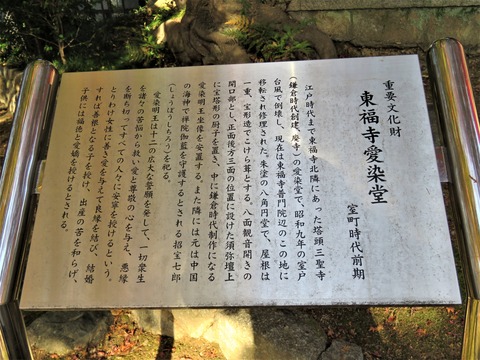 重要文化財
東福寺愛染堂
室町時代前期
江戸時代まで東福寺北隣にあった塔頭三聖寺
（鎌倉時代創建、廃寺）の愛染堂で、昭和九年の室戸
台風で倒壊し、現在は東福寺普門院辺のこの地に
移転され修理された。朱塗の八角円堂で、屋根は
一重、宝形造でこけら葺とする。八面観音開きの
開口部とし、正面後方三面の位置に設けた須弥壇上
に宝塔形の厨子を置き、中に鎌倉時代制作になる
愛染明王坐像を安置する。また隣には元は中国
の海神で禅院伽藍を守護するとされる招宝七郎
（しょうぼうしちろう）を祀る。
愛染明王は十二の広大な誓願を発して、一切衆生
を諸々の苦悩から救い、愛と尊敬の心を与え、悪縁
を断ち切ってすべての人々に安寧を授けるという。
とりわけ女性に善き愛を与えて良縁を結び、結婚
すれば善根となる子を授け、出産の苦を和らげ、
子供には福徳と愛嬌を授けるとされる。